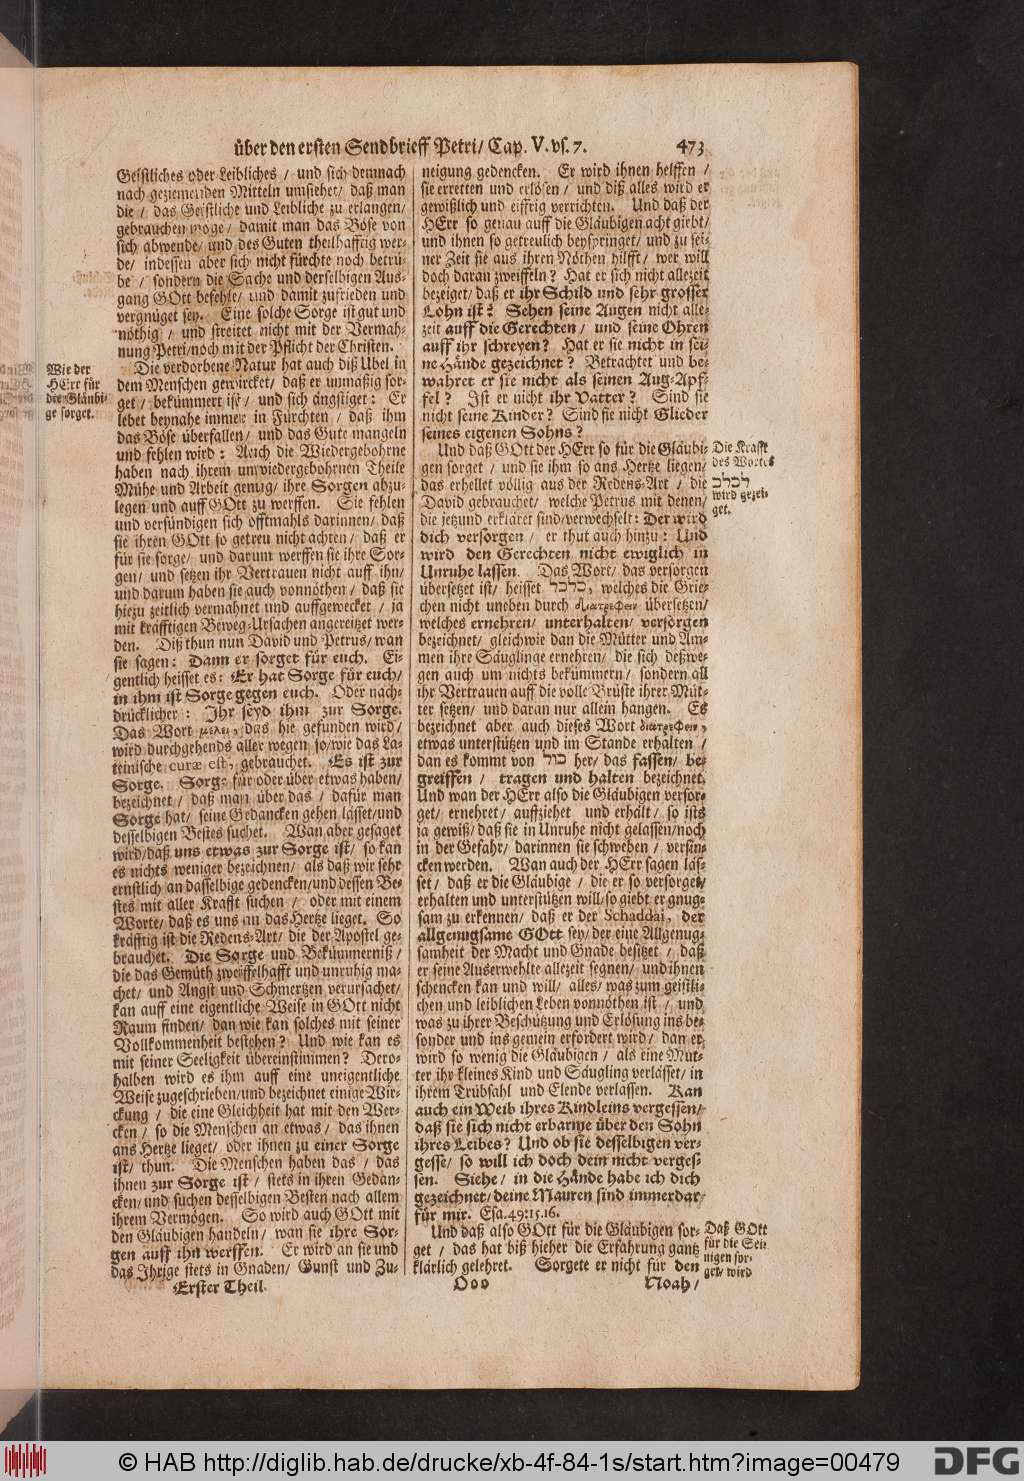 über den ersten Sendbrieff Petri/ Cap. V. vs. 7. 473
Geistliches oder Leibliches / und sich demnach
nach geziemenden Mitteln umsiehet/ daß man
die / das Geistliche und Leibliche zu erlangen/
gebrauchen möge/ damit man das Böse von
sich abwende/ und des Guten theilhafftig wer-
de/ indessen aber sich nicht fürchte noch betrü-
be / sondern die Sache und derselbigen Aus-
gang GOtt befehle/ und damit zufrieden und
vergnüget sey. Eine solche Sorge ist gut und
nöthig / und streitet nicht mit der Vermah-
nung Petri/noch mit der Pflicht der Christen.
Wie der
HErr für
die Gläubi-
ge sorget.
Die verdorbene Natur hat auch diß Ubel in
dem Menschen gewircket/ daß er unmäßig sor-
get / bekümmert ist/ und sich ängstiget: Er
lebet beynahe immer in Fürchten / daß ihm
das Böse überfallen/ und das Gute mangeln
und fehlen wird: Auch die Wiedergebohrne
haben nach ihrem unwiedergebohrnen Theile
Mühe und Arbeit genug/ ihre Sorgen abzu-
legen und auff GOtt zu werffen. Sie fehlen
und versündigen sich öfftmahls darinnen/ daß
sie ihren GOtt so getreu nicht achten/ daß er
für sie sorge/ und darum werffen sie ihre Sor-
gen/ und setzen ihr Vertrauen nicht auff ihn/
und darum haben sie auch vonnöthen/ daß sie
hiezu zeitlich vermahnet und auffgewecket / ja
mit kräfftigen Beweg-Ursachen angereitzet wer-
den. Diß thun nun David und Petrus/ wan
sie sagen: Dann er sorget für euch. Ei-
gentlich heisset es: Er hat Sorge für euch/
in ihm ist Sorge gegen euch. Oder nach-
drücklicher: Ihr seyd ihm zur Sorge.
Das Wort μέλει, das hie gefunden wird/
wird durchgehends aller wegen so/wie das La-
teinische curæ est, gebrauchet. Es ist zur
Sorge. Sorge für oder über etwas haben/
bezeichnet / daß man über das / dafür man
Sorge hat/ seine Gedancken gehen lässet/und
desselbigen Bestes suchet. Wan aber gesaget
wird/daß uns etwas zur Sorge ist/ so kan
es nichts weniger bezeichnen/ als daß wir sehr
ernstlich an dasselbige gedencken/und dessen Be-
stes mit aller Krafft suchen / oder mit einem
Worte/ daß es uns an das Hertze lieget. So
kräfftig ist die Redens-Art/ die der Apostel ge-
brauchet. Die Sorge und Bekümmerniß/
die das Gemüth zweyffelhafft und unruhig ma-
chet/ und Angst und Schmertzen verursachet/
kan auff eine eigentliche Weise in GOtt nicht
Raum finden/ dan wie kan solches mit seiner
Vollkommenheit bestehen? Und wie kan es
mit seiner Seeligkeit übereinstimmen? Dero-
halben wird es ihm auff eine uneigentliche
Weise zugeschrieben/und bezeichnet einige Wir-
ckung / die eine Gleichheit hat mit den Wer-
cken / so die Menschen an etwas / das ihnen
ans Hertze lieget/ oder ihnen zu einer Sorge
ist/ thun. Die Menschen haben das / das
ihnen zur Sorge ist / stets in ihren Gedan-
cken/ und suchen desselbigen Besten nach allem
ihrem Vermögen. So wird auch GOtt mit
den Gläubigen handeln/ wan sie ihre Sor-
gen auff ihn werffen. Er wird an sie und
das Ihrige stets in Gnaden/ Gunst und Zu-
Erster Theil.
neigung gedencken. Er wird ihnen helffen /
sie erretten und erlösen / und diß alles wird er
gewißlich und eiffrig verrichten. Und daß der
HErr so genau auff die Gläubigen acht giebt/
und ihnen so getreulich beyspringet/ und zu sei-
ner Zeit sie aus ihren Nöthen hilfft / wer will
doch daran zweiffeln? Hat er sich nicht allezeit
bezeiget/ daß er ihr Schild und sehr grosser
Lohn ist? Sehen seine Augen nicht alle-
zeit auff die Gerechten / und seine Ohren
auff ihr schreyen? Hat er sie nicht in sei-
ne Hände gezeichnet? Betrachtet und be-
wahret er sie nicht als seinen Aug-Apf-
fel? Ist er nicht ihr Vatter? Sind sie
nicht seine Kinder? Sind sie nicht Glieder
seines eigenen Sohns?
Und daß GOtt der HErr so für die Gläubi-
gen sorget / und sie ihm so ans Hertze liegen/
das erhellet völlig aus der Redens-Art / die
David gebrauchet/ welche Petrus mit denen/
die jetzund erkläret sind/verwechselt: Der wird
dich versorgen / er thut auch hinzu: Und
wird den Gerechten nicht ewiglich in
Unruhe lassen. Das Wort/ das versorgen
übersetzet ist/ heisset כלכל, welches die Grie-
chen nicht uneben durch διατρέφειν übersetzen/
welches ernehren/ unterhalten/ versorgen
bezeichnet/ gleichwie dan die Mütter und Am-
men ihre Säuglinge ernehren/ die sich deßwe-
gen auch um nichts bekümmern/ sondern all
ihr Vertrauen auff die volle Brüste ihrer Müt-
ter setzen/ und daran nur allein hangen. Es
bezeichnet aber auch dieses Wort διατρέφειν,
etwas unterstützen und im Stande erhalten /
dan es kommt von כול her/ das fassen/ be-
greiffen / tragen und halten bezeichnet.
Und wan der HErr also die Gläubigen versor-
get/ ernehret/ auffziehet und erhält/ so ists
ja gewiß/ daß sie in Unruhe nicht gelassen/noch
in der Gefahr/ darinnen sie schweben / versin-
cken werden. Wan auch der HErr sagen läs-
set/ daß er die Gläubige / die er so versorget/
erhalten und unterstützen will/so giebt er gnug-
sam zu erkennen/ daß er der Schaddai, der
allgenugsame GOtt sey/ der eine Allgenug-
samheit der Macht und Gnade besitzet / daß
er seine Auserwehlte allezeit segnen/ und ihnen
schencken kan und will/ alles/ was zum geistli-
chen und leiblichen Leben vonnöthen ist / und
was zu ihrer Beschützung und Erlösung ins be-
sonder und ins gemein erfordert wird/ dan er
wird so wenig die Gläubigen / als eine Mut-
ter ihr kleines Kind und Säugling verlässet/ in
ihrem Trübsahl und Elende verlassen. Kan
auch ein Weib ihres Kindleins vergessen/
daß sie sich nicht erbarme über den Sohn
ihres Leibes? Und ob sie desselbigen ver-
gesse/ so will ich doch dein nicht verges-
sen. Siehe/ in die Hände habe ich dich
gezeichnet/ deine Mauren sind immerdar
für mir. Esa. 49:15.16.
Und daß also GOtt für die Gläubigen sor-
get / das hat biß hieher die Erfahrung gantz
klärlich gelehret. Sorgete er nicht für den
Ooo Noah/
Die Krafft
des Wortes
כלכל
wird gezei-
get.
Daß GOtt
für die Sei-
nigen sor-
get/ wird
© HAB http://diglib.hab.de/drucke/xb-4f-84-1s/start.htm?image=00479
DFG